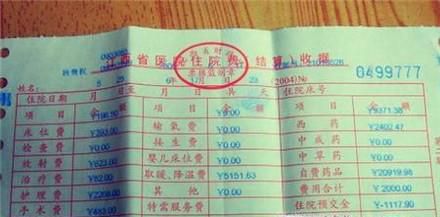 江西省医院住院费(结算)收据
0499777
姓名: 8 23 6 17 23 (2004)№
住院日期 月 日至 月 日共 天 住院床号
项目 金额 项目 金额 项目 金额
¥196.50 ¥0.00 ¥9371.38
床位费 ¥393.00 输氧费 ¥0.00 西药 ¥2402.47
检查费 ¥0.00 接生费 ¥0.00 中成药 ¥0.00
放射费 ¥823.00 婴儿床位费 ¥0.00 中草药 ¥0.00
治疗费 ¥82.00 取暖、降温费 ¥5151.63 自费药品 ¥20919.98
护理费 ¥2268.00 其他 ¥0.00 费用合计 ¥2000.00
手术费 ¥483.00 特需服务费 住院预交金 ¥-1117.90